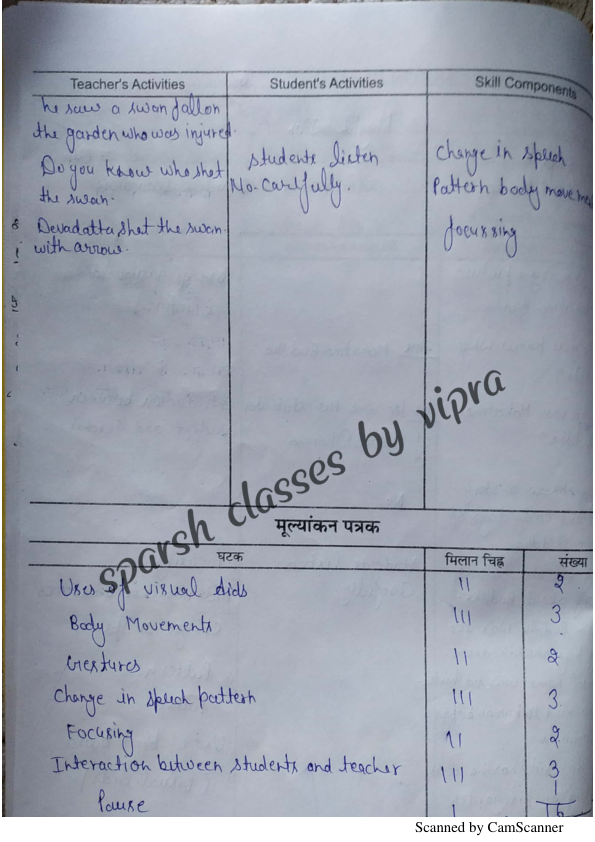 Teacher's Activities
Student's Activities
Skill Components
he saw a swan fall on
the garden who was injured.
Do you know who shot
the swan.
Devadatta shot the swan
with arrow.
Students listen
No. Carefully.
Change in speech
Pattern body movement
focussing
sparsh classes by vipra
मूल्यांकन पत्रक
घटक मिलान चिह्न संख्या
Uses of visual Aids II 2
Body Movements III 3
Gestures II 2
Change in speech pattern III 3
Focusing II 2
Interaction between students and teacher III 3
Pause I 1
16
Scanned by CamScanner